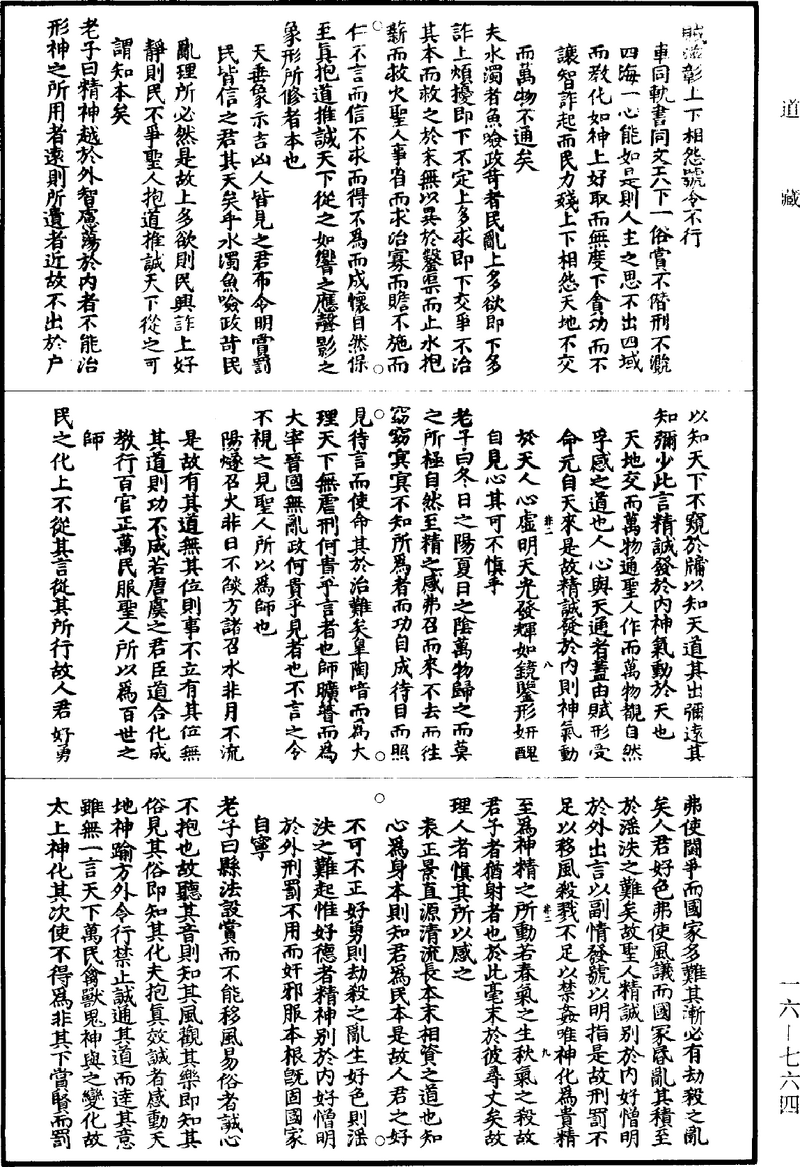 道藏
賊滋彰上下相怨號令不行
車同軌書同文天下一俗賞不僭刑不濫
四海一心能如是則人主之思不出四域
而教化如神上好取而無度下貪功而不
讓智詐起而民力殘上下相怨天地不交
而萬物不通矣
夫水濁者魚噞政苛者民亂上多欲即下多
詐上煩擾即下不定上多求即下交爭不治
其本而救之於末無以異於鑿渠而止水抱
薪而救火聖人事省而求治寡而贍不施而
仁不言而信不求而得不爲而成懷自然保
至真抱道推誠天下從之如響之應聲影之
象形所修者本也
天垂象示吉凶人皆見之君布令明賞罰
民皆信之君其天矣乎水濁魚噞政苛民
亂理所必然是故上多欲則民興詐上好
靜則民不爭聖人抱道推誠天下從之可
謂知本矣
老子曰精神越於外智慮蕩於內者不能治
形神之所用者遠則所遺者近故不出於户
以知天下不窺於牖以知天道其出彌遠其
知彌少此言精誠發於內神氣動於天也
天地交而萬物通聖人作而萬物覩自然
孚感之道也人心與天通者蓋由賦形受
命元自天來是故精誠發於內則神氣動
於天人心虛明天光發輝如鏡鑒形妍醜
自見心其可不慎乎
老子曰冬日之陽夏日之陰萬物歸之而莫
之所極自然至精之感弗召而來不去而往
窈窈冥冥不知所爲者而功自成待目而照
見待言而使命其於治難矣皐陶喑而爲大
理天下無虐刑何貴乎言者也師曠瞽而爲
大宰晉國無亂政何貴乎見者也不言之令
不視之見聖人所以爲師也
陽燧召火非日不燄方諸召水非月不流
是故有其道無其位則事不立有其位無
其道則功不成若唐虞之君臣道合化成
教行百官正萬民服聖人所以爲百世之
師
民之化上不從其言從其所行故人君好勇
弗使鬪爭而國家多難其漸必有劫殺之亂
矣人君好色弗使風議而國家昏亂其積至
於滛泆之難矣故聖人精誠別於內好憎明
於外出言以副情發號以明指是故刑罰不
足以移風殺戮不足以禁姦唯神化爲貴精
至爲神精之所動若春氣之生秋氣之殺故
君子者猶射者也於此毫末於彼尋丈矣故
理人者慎其所以感之
表正景直源清流長本末相資之道也知
心爲身本則知君爲民本是故人君之好
不可不正好勇則劫殺之亂生好色則滛
泆之難起惟好德者精神別於內好憎明
於外刑罰不用而奸邪服本根既固國家
自寧
老子曰縣法設賞而不能移風易俗者誠心
不抱也故聽其音則知其風觀其樂即知其
俗見其俗即知其化夫抱真效誠者感動天
地神踰方外令行禁止誠通其道而達其意
雖無一言天下萬民禽獸鬼神與之變化故
太上神化其次使不得爲非其下賞賢而罰
一六—七六四